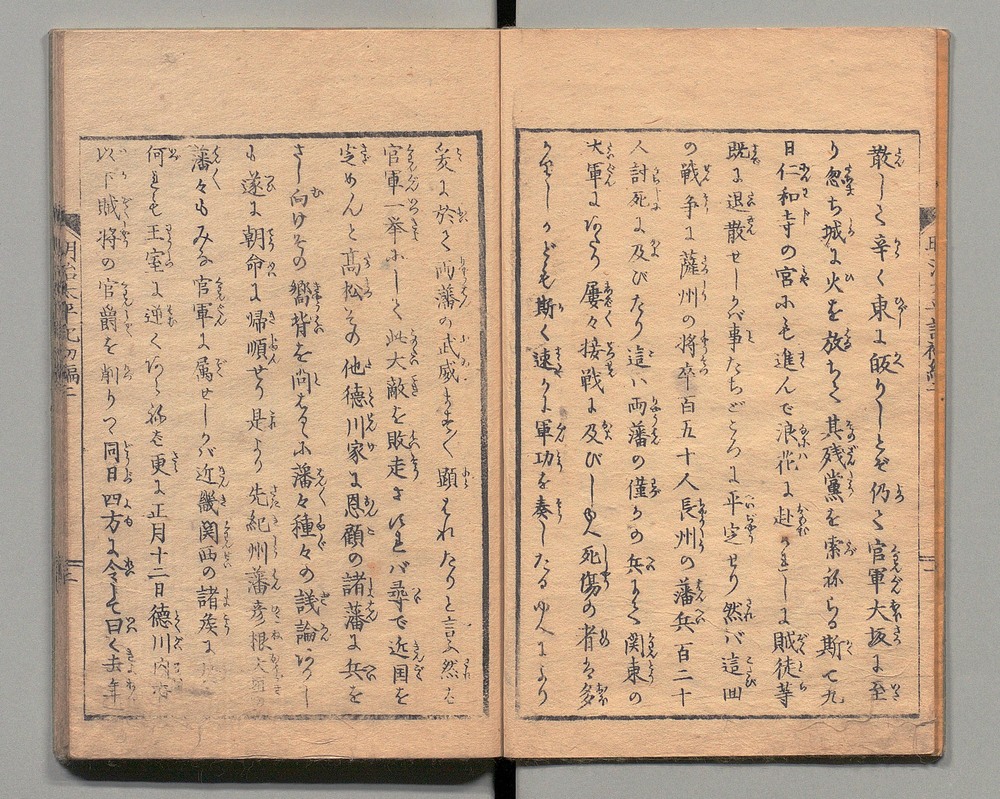 散して辛く東に皈りしとぞ仍て官軍大坂に至
り忽ち城に火を放ちて其残黨を索ねらる斯て九
日仁和寺の宮にも進んで浪花に赴かれしに賊徒等
既に退散せしかバ事たちどころに平定せり然バ這回
の戦争に薩州の将卒百五十人長州の藩兵百二十
人討死に及びたり這ハ両藩の僅かの兵にて関東の
大軍にあたり屡々接戦に及びしゆへ死傷の者も多
かりしかども斯く速かに軍功を奏したるゆへにより
爰に於て両藩の武威ますます顕はれたりと言ふ然るに
官軍一挙にして此大敵を敗走させけれバ尋で近国を
定めんと高松その他徳川家に恩顧の諸藩に兵を
さし向けその嚮背を問るるに藩々種々の議論ありし
も遂に朝命に帰順せり是より先紀州藩彦根
藩々もみな官軍に属せしかバ近畿関西の諸侯に
何れも王室に逆くあらねバ更に正月十二日徳川内府
以下賊将の官爵を削りて同日四方に令して曰く去年
明治太平記初編一